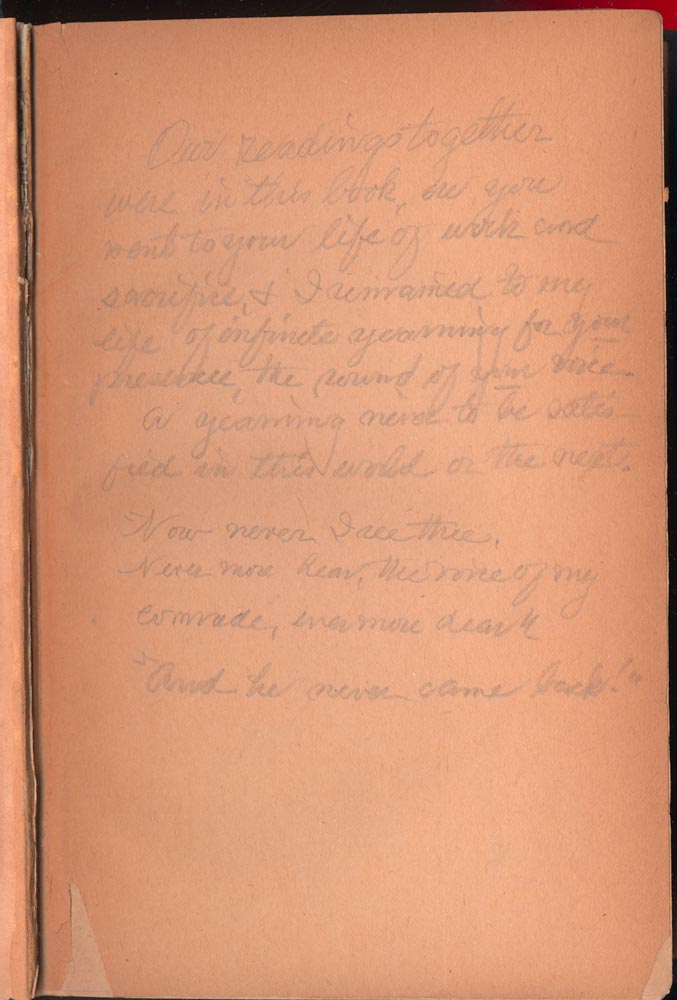 Our readings together
were in this book, ere you
went to your life of work and
sacrifice, & I remained to my
life of infinite yearning for your
presence, the sound of your voice.
A yearning never to be satis-
fied in this world or the next.
"Now never I see thee,
Never more hear, the voice of my
comrade, evermore dear"
"And he never came back!"